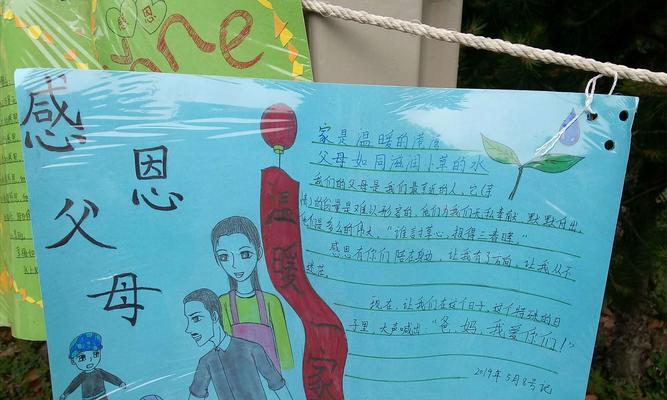 感恩父母
温暖一家
家是温暖的
父母如同滋润小草的水
我们的父母是我们最亲近的人，它
的能量是难以形容的，他们为我们无私奉献，默默付出，
他们是多么的伟大，“谁言寸草心，报得三春晖。”
感恩有你们陪在身边，让我有了方向，让我从不
迷茫。
现在，让我们在这个日子，这个特殊的日
子里，大声喊出“爸，妈，我爱你们！”
2019年5月8号记
感恩